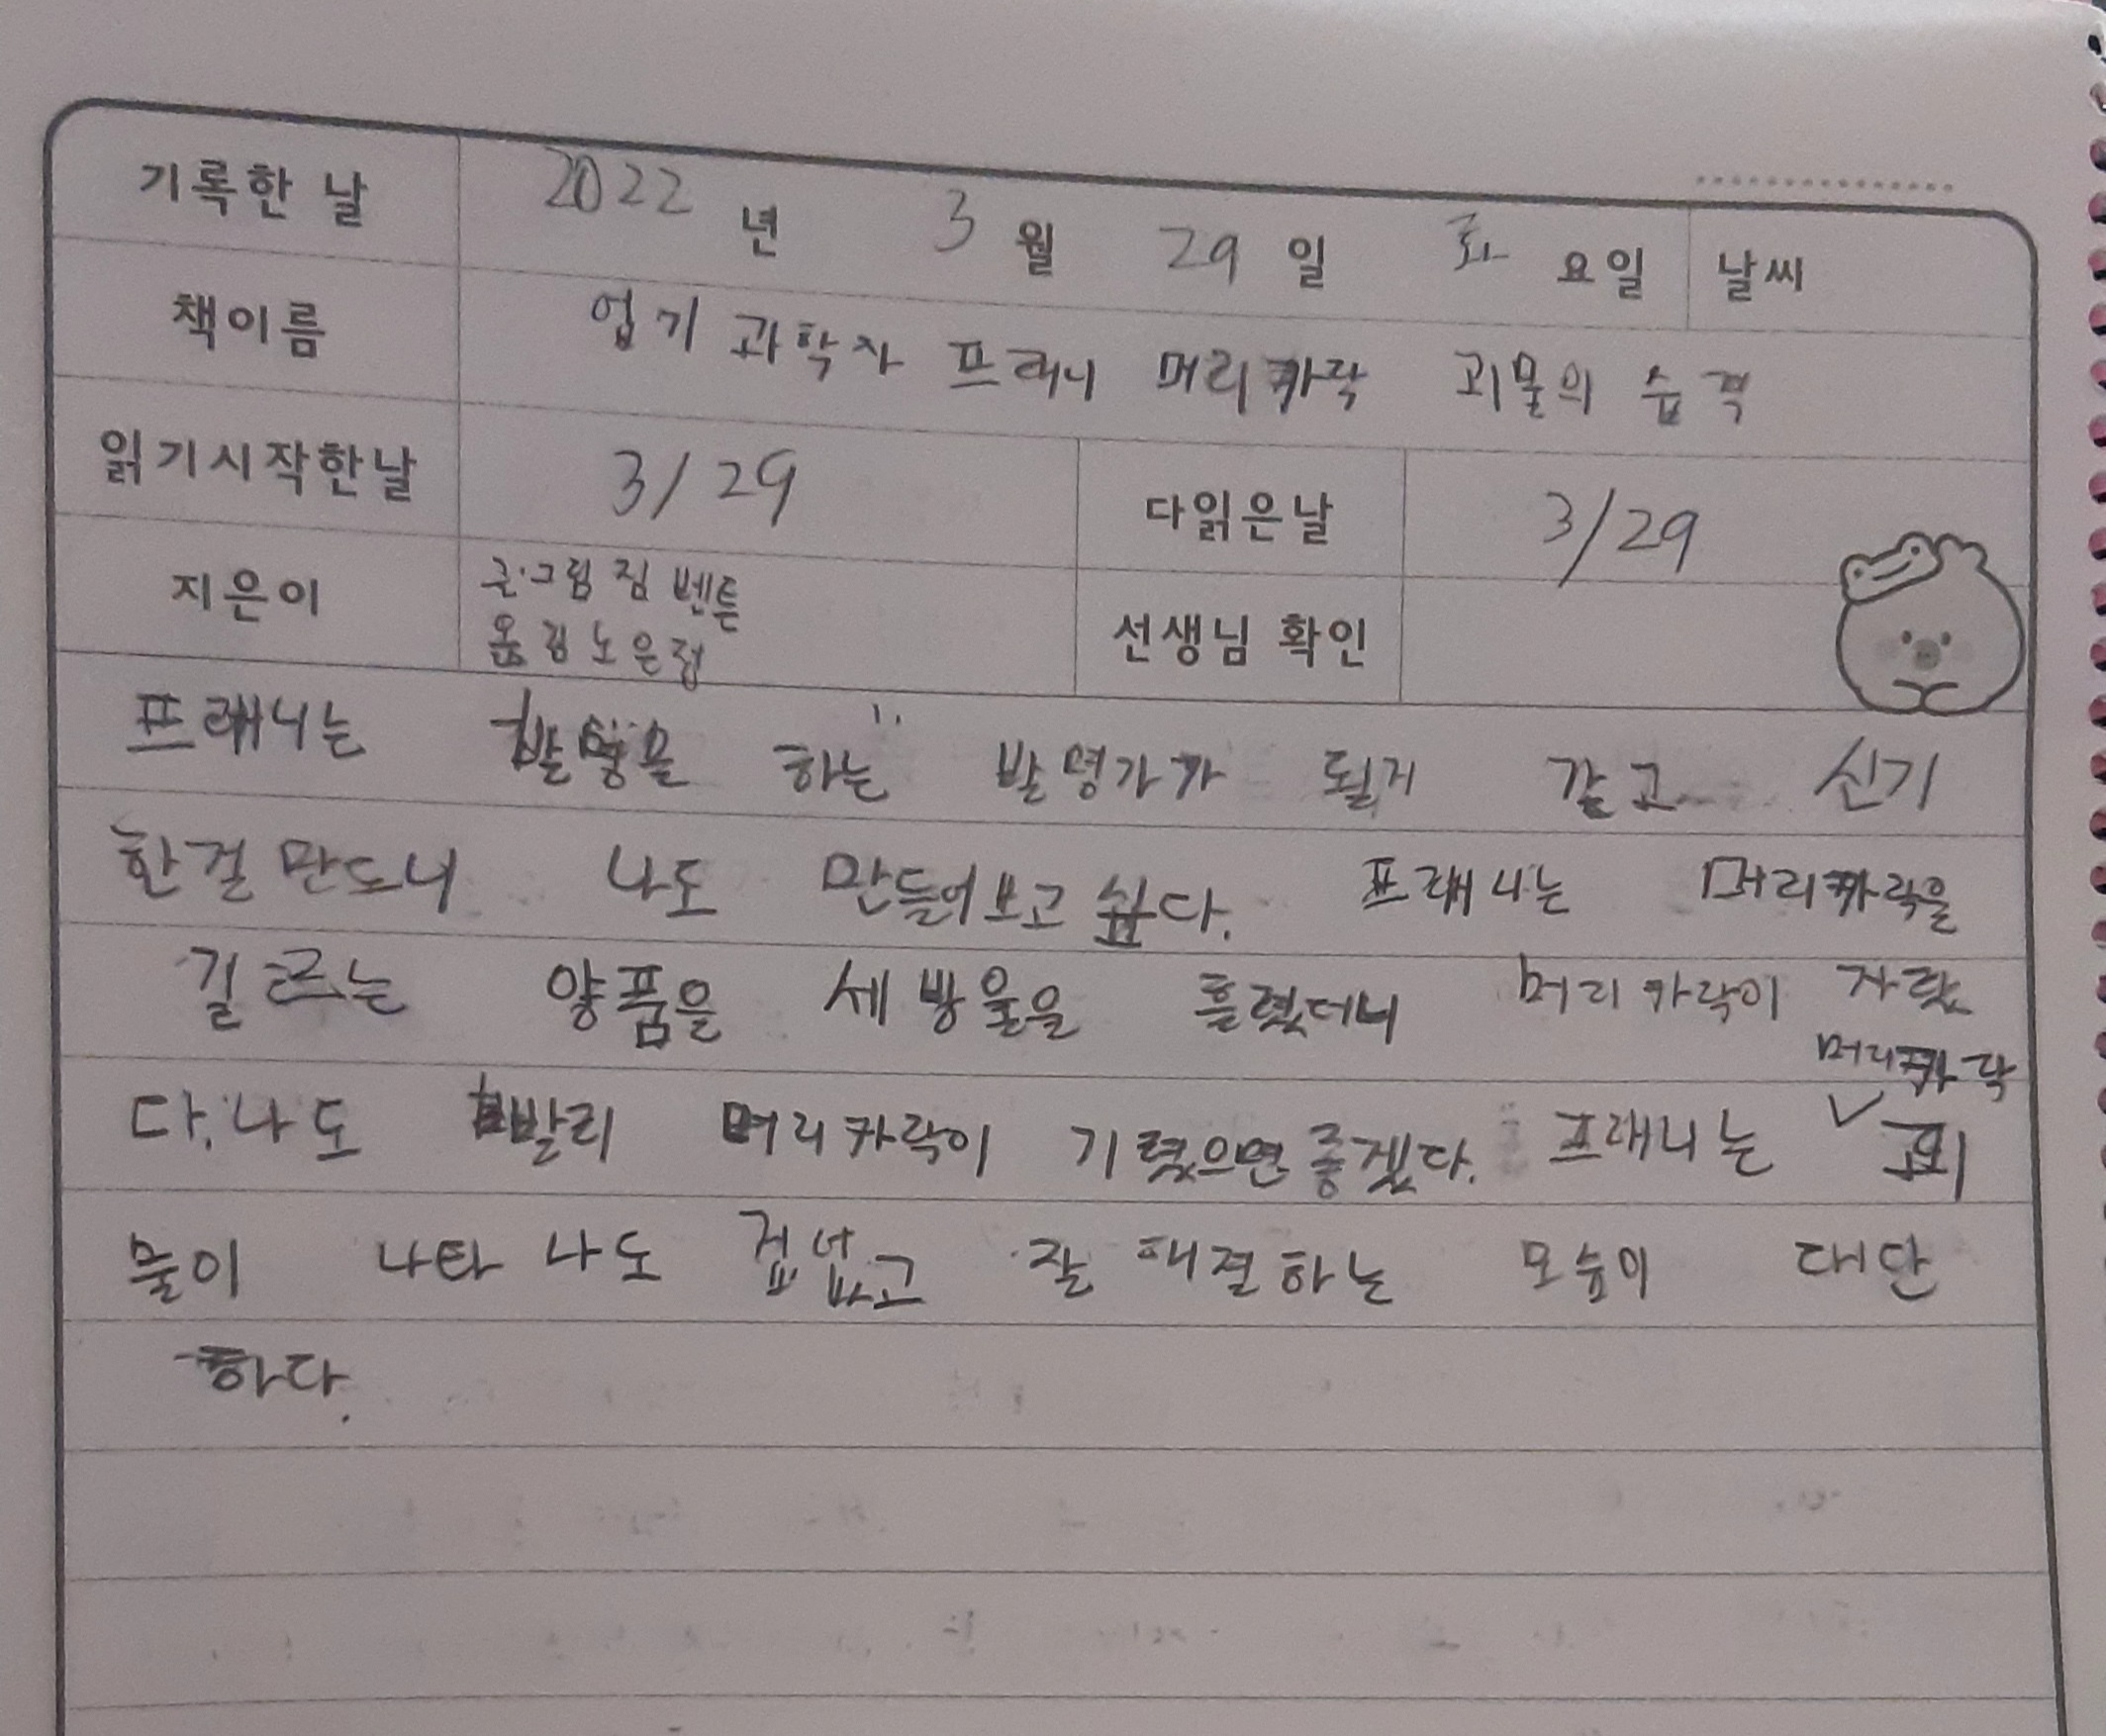 기록한 날 2022 년 3 월 29 일 화 요일 날씨
책이름 엽기 과학자 프래니 머리카락 괴물의 습격
읽기시작한날 3/29 다읽은날 3/29
지은이 글·그림 짐 벤튼
옮김 노은정 선생님 확인
프래니는 발명을 하는 발명가가 될거 같고 신기
한걸 만드니 나도 만들어보고 싶다. 프래니는 머리카락을
길르는 양품을 세 방울을 흘렸더니 머리카락이 자랐
머리카락
다. 나도 빨리 머리카락이 기렀으면 좋겠다. 프래니는 ✓ 괴
물이 나타나도 겁없고 잘 해결하는 모습이 대단
하다.